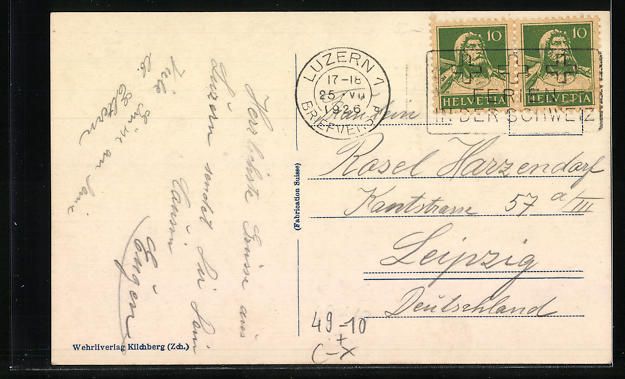 Herzlichste Grüsse aus
Luzern sendet Dir Dein
Cousin
Eugen
Viele Grüsse an Deine
l. Eltern
(Fabrication Suisse)
Wehrliverlag Kilchberg (Zch.)
10 10
HELVETIA HELVETIA
LUZERN 1
17-18
25. VII
1926
BRIEFVERSD
FERIEN
IN DER SCHWEIZ
Fräulein
Rosel Harzendorf
Kantstrasse 57 a/III
Leipzig
Deutschland
49-10
+
C-x